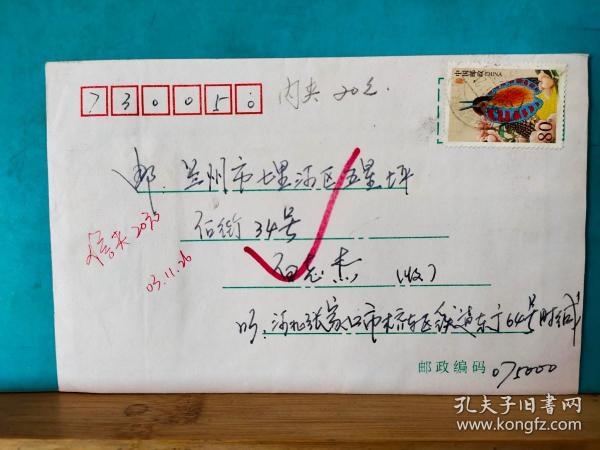 730050
内夹20元.
中国邮政 CHINA
80
邮. 兰州市七里河区五星坪
佰街34号
志杰 (收)
信夹20元
03.11.26
河北张家口市桥东区铁道东 64号
邮政编码 075000
孔夫子旧书网
www.kongfz.com